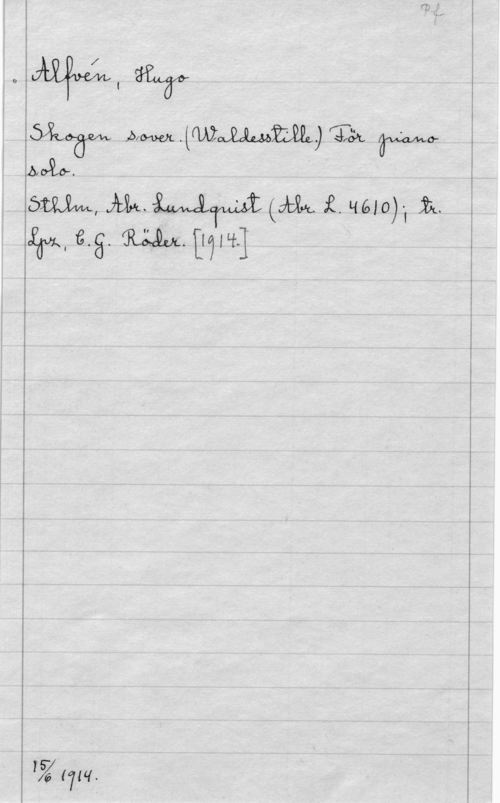 Pf
Alfvén, Hugo
Skogen sover. (Waldesstille.) För piano
solo.
Sthlm, Abr. Lundquist (Abr. L. 4610); tr.
Lpz, C. G. Röder. [1914]
15/6 1914.